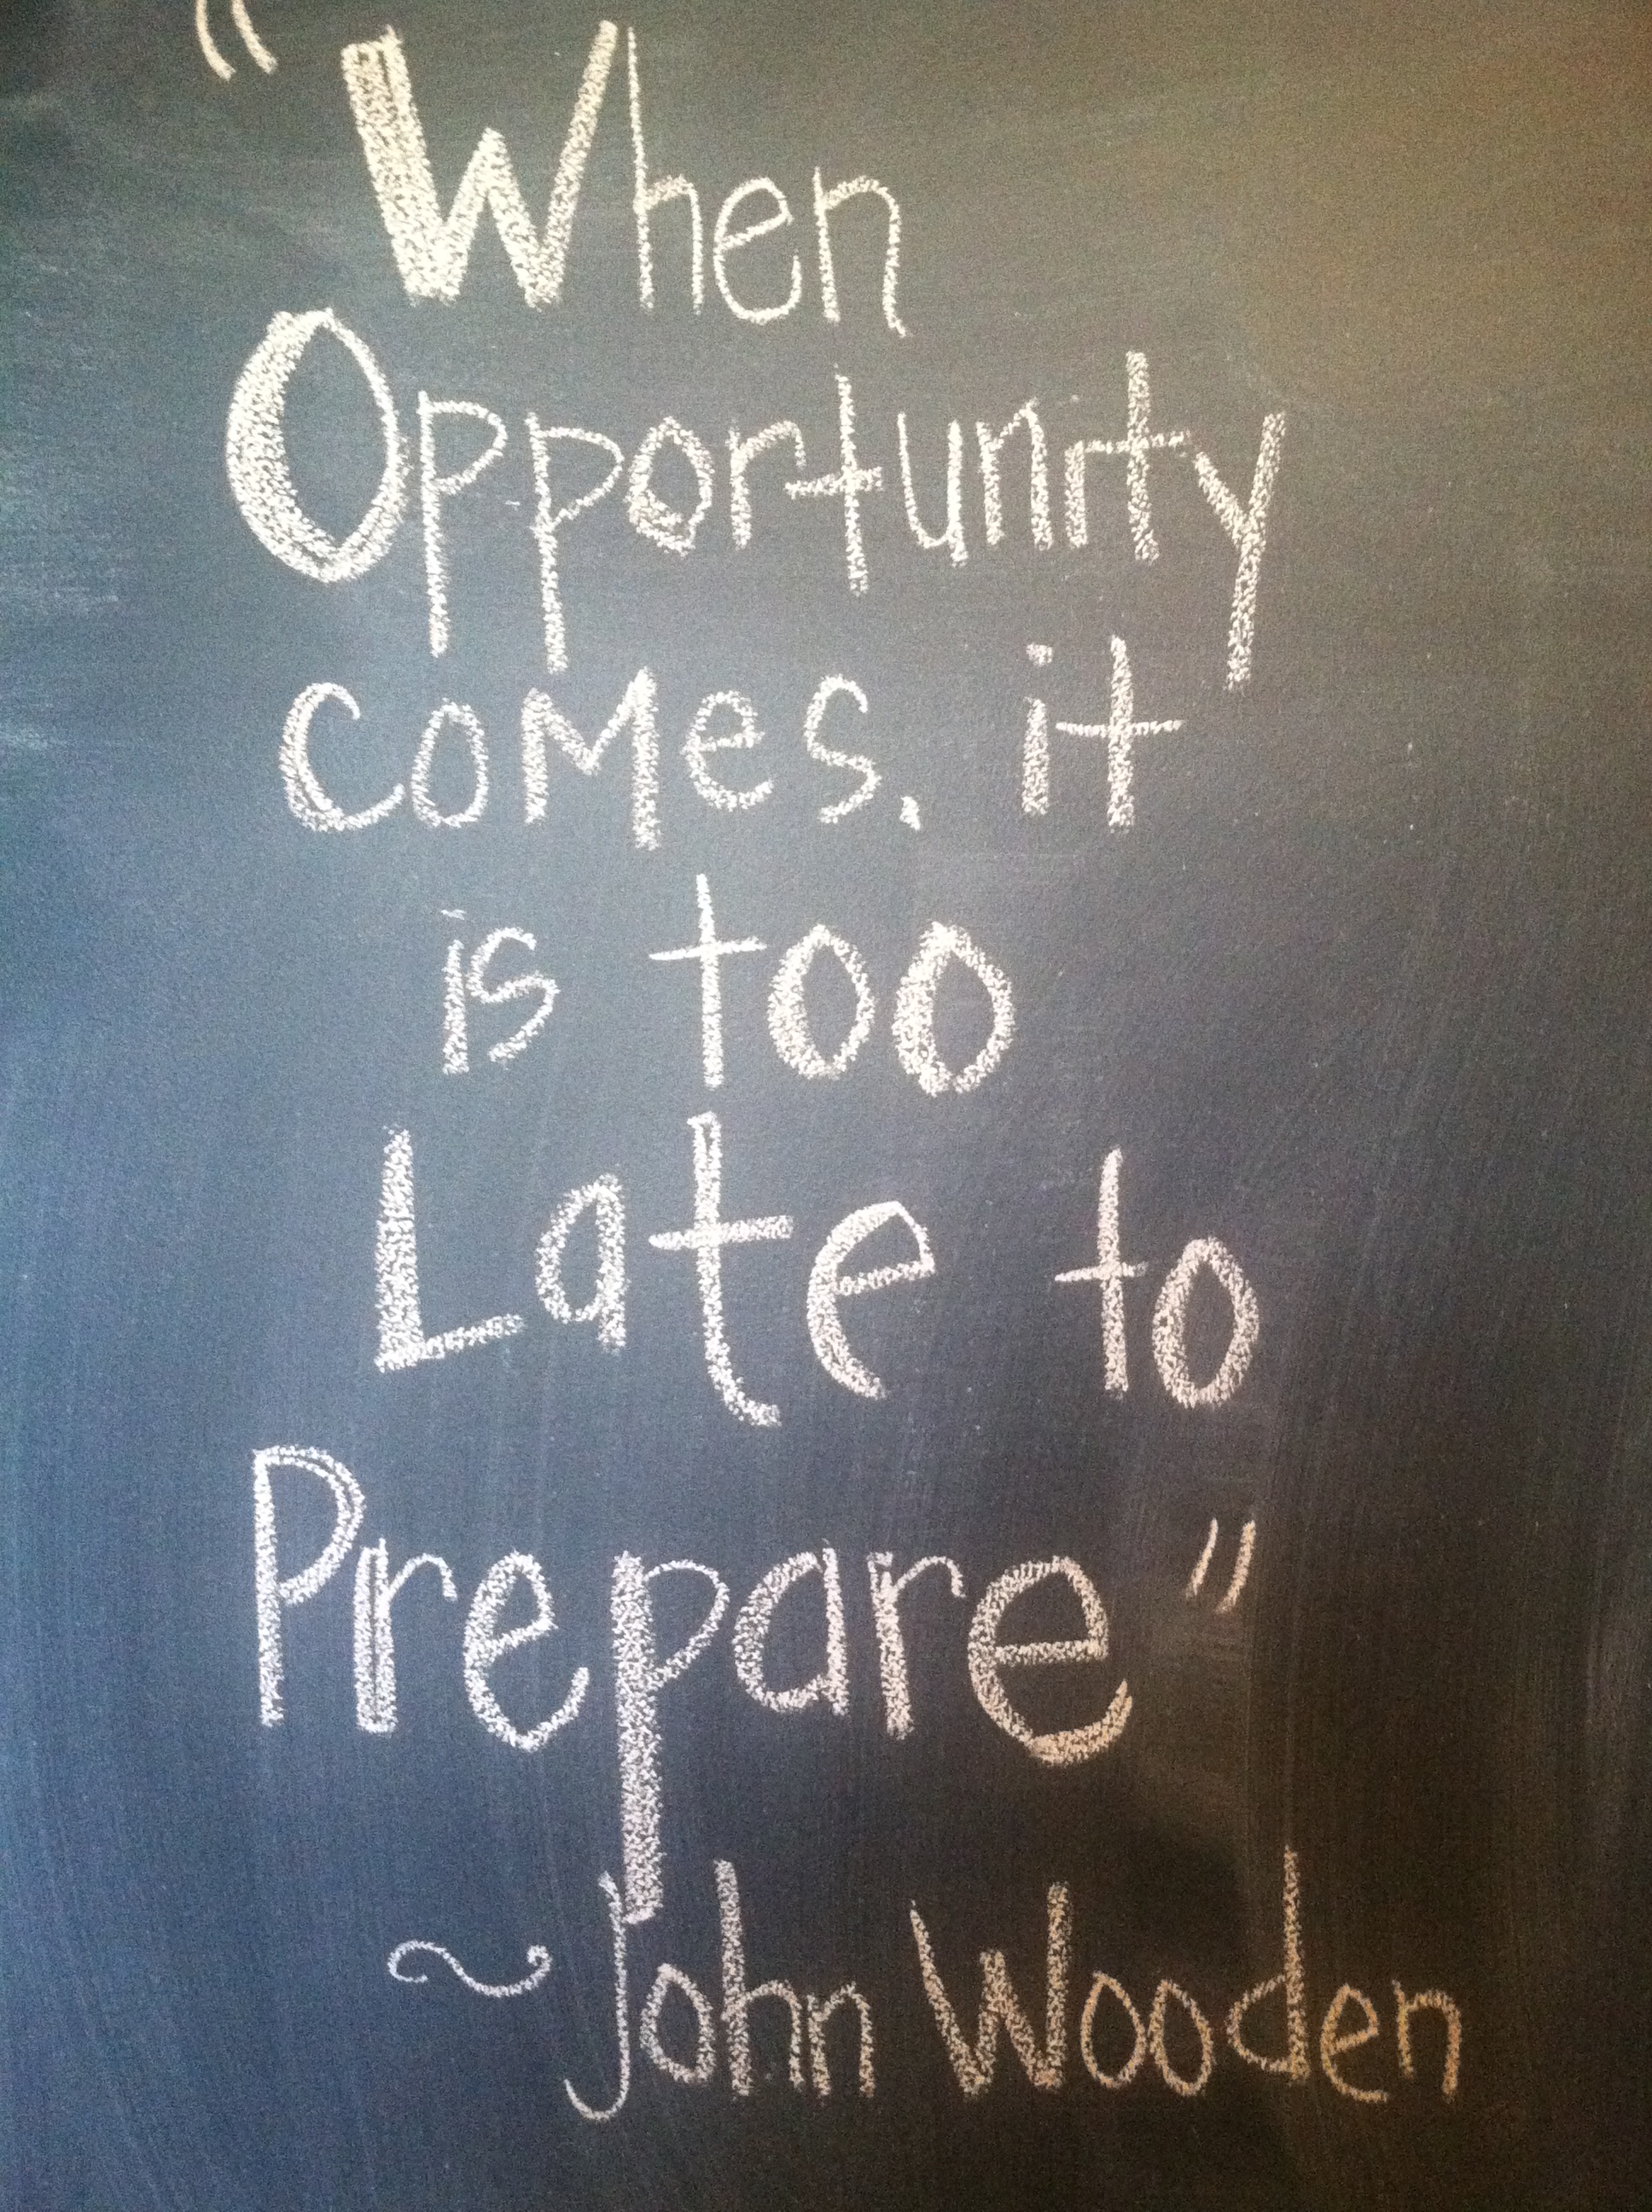 “When
Opportunity
comes, it
is too
Late to
Prepare”
~John Wooden